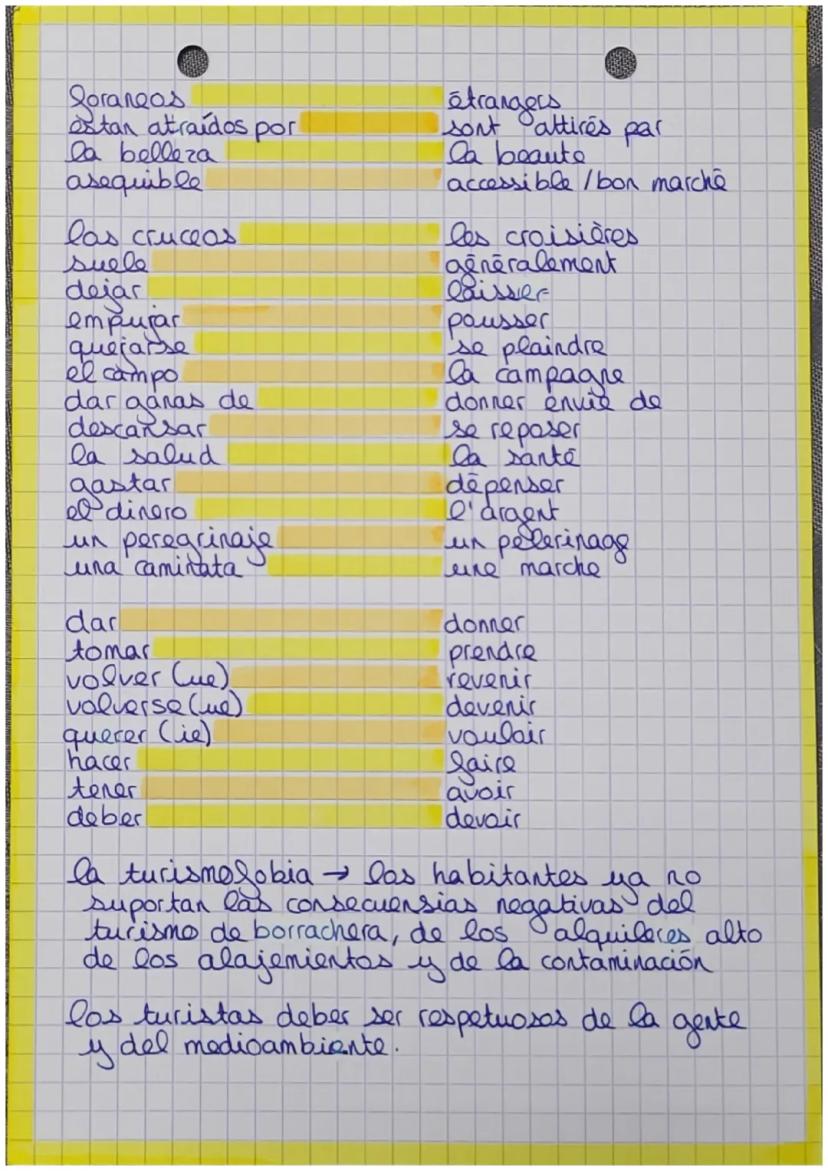 foraneos étrangers
estan atraídos por sont attirés par
la belleza la beauté
asequible accessible / bon marché
los cruceos les croisières
suele généralement
dejar laisser
empujar pousser
quejarse se plaindre
el campo la campagne
dar ganas de donner envie de
descansar se reposer
la salud la santé
gastar dépenser
el dinero l'argent
un peregrinaje un pelerinage
una caminata une marche
dar donner
tomar prendre
volver (ue) revenir
volverse (ue) devenir
querer (ie) vouloir
hacer faire
tener avoir
deber devoir
la turismofobia → los habitantes ya no
suportan las consecuensias negativas del
turismo de borrachera, de los alquileres alto
de los alajemientos y de la contaminación
los turistas deber ser respetuosos de la gente
y del medioambiente.